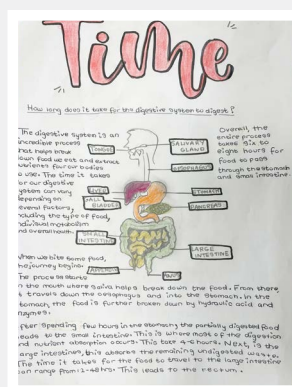 Time
How long does it take for the digestive system to digest?
The digestive system is an
incredible process
that helps break
down food we eat and extract
nutrients for our bodies
to use. The time it takes
for our digestive
system can vary
depending on
several factors,
including the type of food,
individual metabolism
and overall health.
When we bite some food,
the journey begins.
The process starts
in the mouth where saliva helps break down the food. From there,
it travels down the oesophagus and into the stomach. In the
stomach, the food is further broken down by hydraulic acid and
enzymes.
After spending few hours in the stomach the partially digested food
leads to the small intestine. This is where most of the digestion
and nutrient absorption occurs. This take 4-6 hours. Next, is the
large intestines, this absorbs the remaining undigested waste.
The time it takes for the food to travel to the large intestine
can range from 12-48hrs. This leads to the rectum.
Overall, the
entire process
takes six to
eight hours for
food to pass
through the stomach
and small intestine.
TONGUE
SALIVARY
GLAND
OESOPHAGUS
LIVER
GALL
BLADDER
STOMACH
PANCREAS
SMALL
INTESTINE
LARGE
INTESTINE
APPENDIX
ANUS